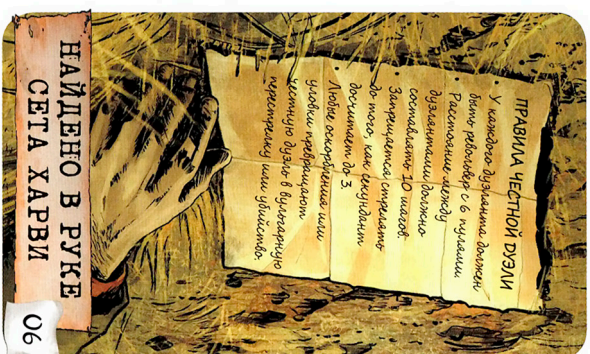 НАЙДЕНО В РУКЕ
СЕТА ХАРВИ
06
ПРАВИЛА ЧЕСТНОЙ ДУЭЛИ
• У каждого дуэлянта должен
быть револьвер с 6 пулями.
• Расстояние между
дуэлянтами должно
составлять 10 шагов.
• Запрещается стрелять
до того, как секундант
досчитает до 3.
• Любые оскорбления или
уловки превращают
честную дуэль в вульгарную
перестрелку или убийство.